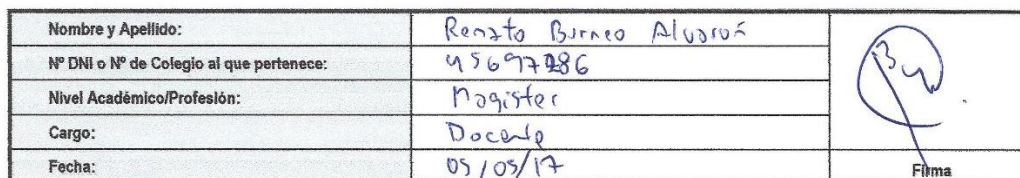 Nombre y Apellido: Renato Burneo Alvarón
Nº DNI o Nº de Colegio al que pertenece: 45697286
Nivel Académico/Profesión: Magister
Cargo: Docente
Fecha: 05/05/17
Firma